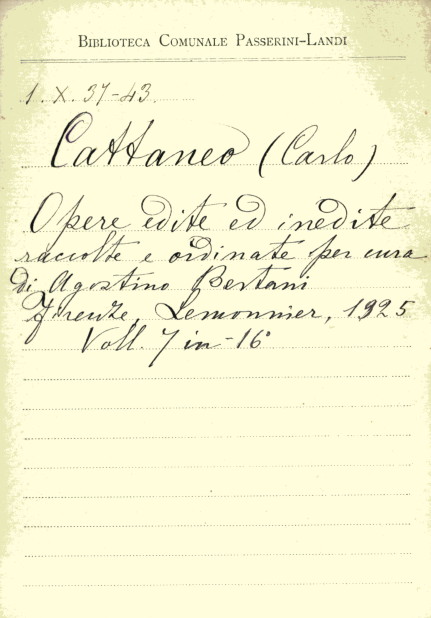 BIBLIOTECA COMUNALE PASSERINI-LANDI
1. X. 37-43.
Cattaneo (Carlo)
Opere edite ed inedite
raccolte e ordinate per cura
di Agostino Bertani
Firenze, Lemonnier, 1925
Voll. 7 in-16°